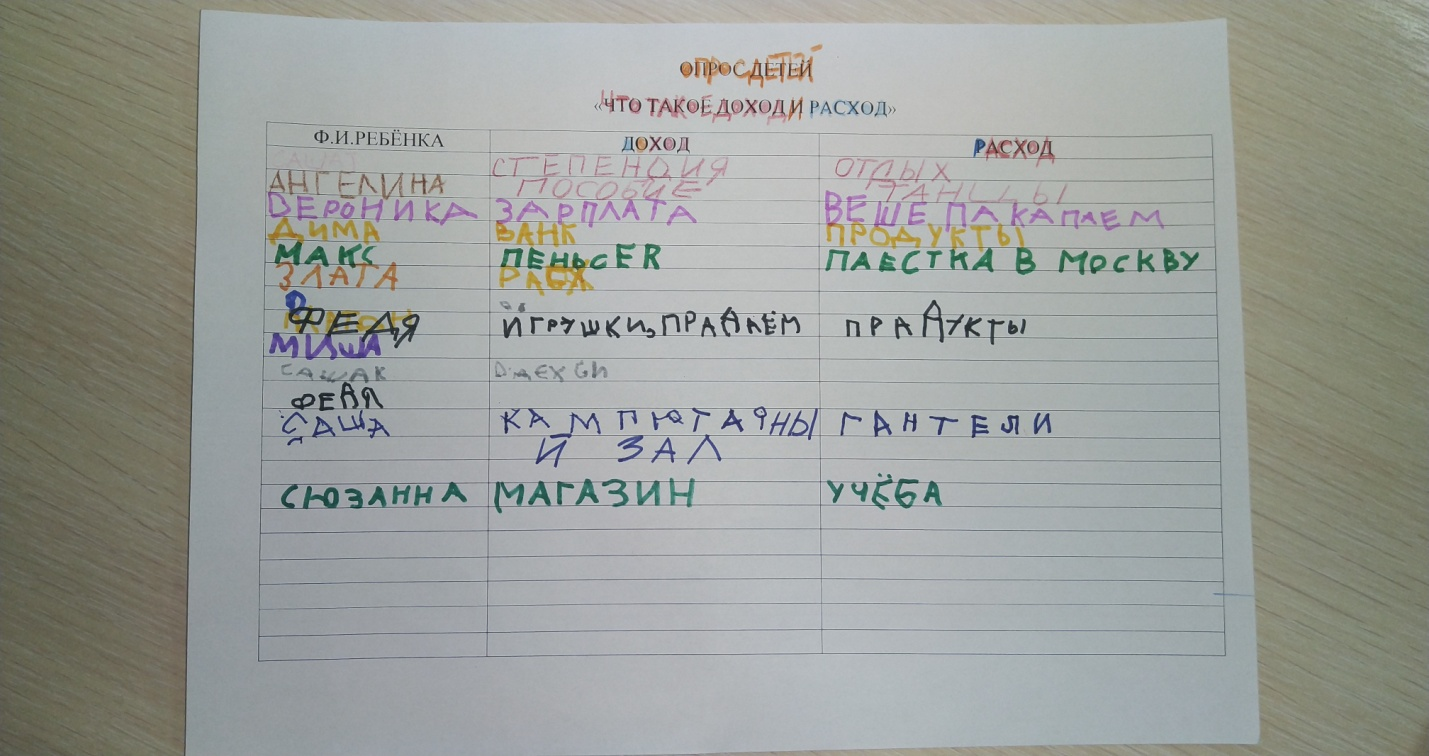 ОПРОС ДЕТЕЙ
«ЧТО ТАКОЕ ДОХОД И РАСХОД»
Ф.И.РЕБЁНКА ДОХОД РАСХОД
СТЕПЕНДИЯ ОТДЫХ
АНГЕЛИНА ПОСОБИЕ ТАНЦЫ
ВЕРОНИКА ЗАРПЛАТА ВЕШЕ ПАКАПАЕМ
ДИМА БАНК ПРОДУКТЫ
МАКС ПЕНЬСЕR ПАЕСТКА В МОСКВУ
ЗЛАТА
ФЕДЯ ИГРУШКИ, ПРАДАЁМ ПРАДУКТЫ
МИША
САШАК
ФЕДЯ
САША КАМПЮТАРНЫ ГАНТЕЛИ
Й ЗАЛ
СЮЗАННА МАГАЗИН УЧЁБА